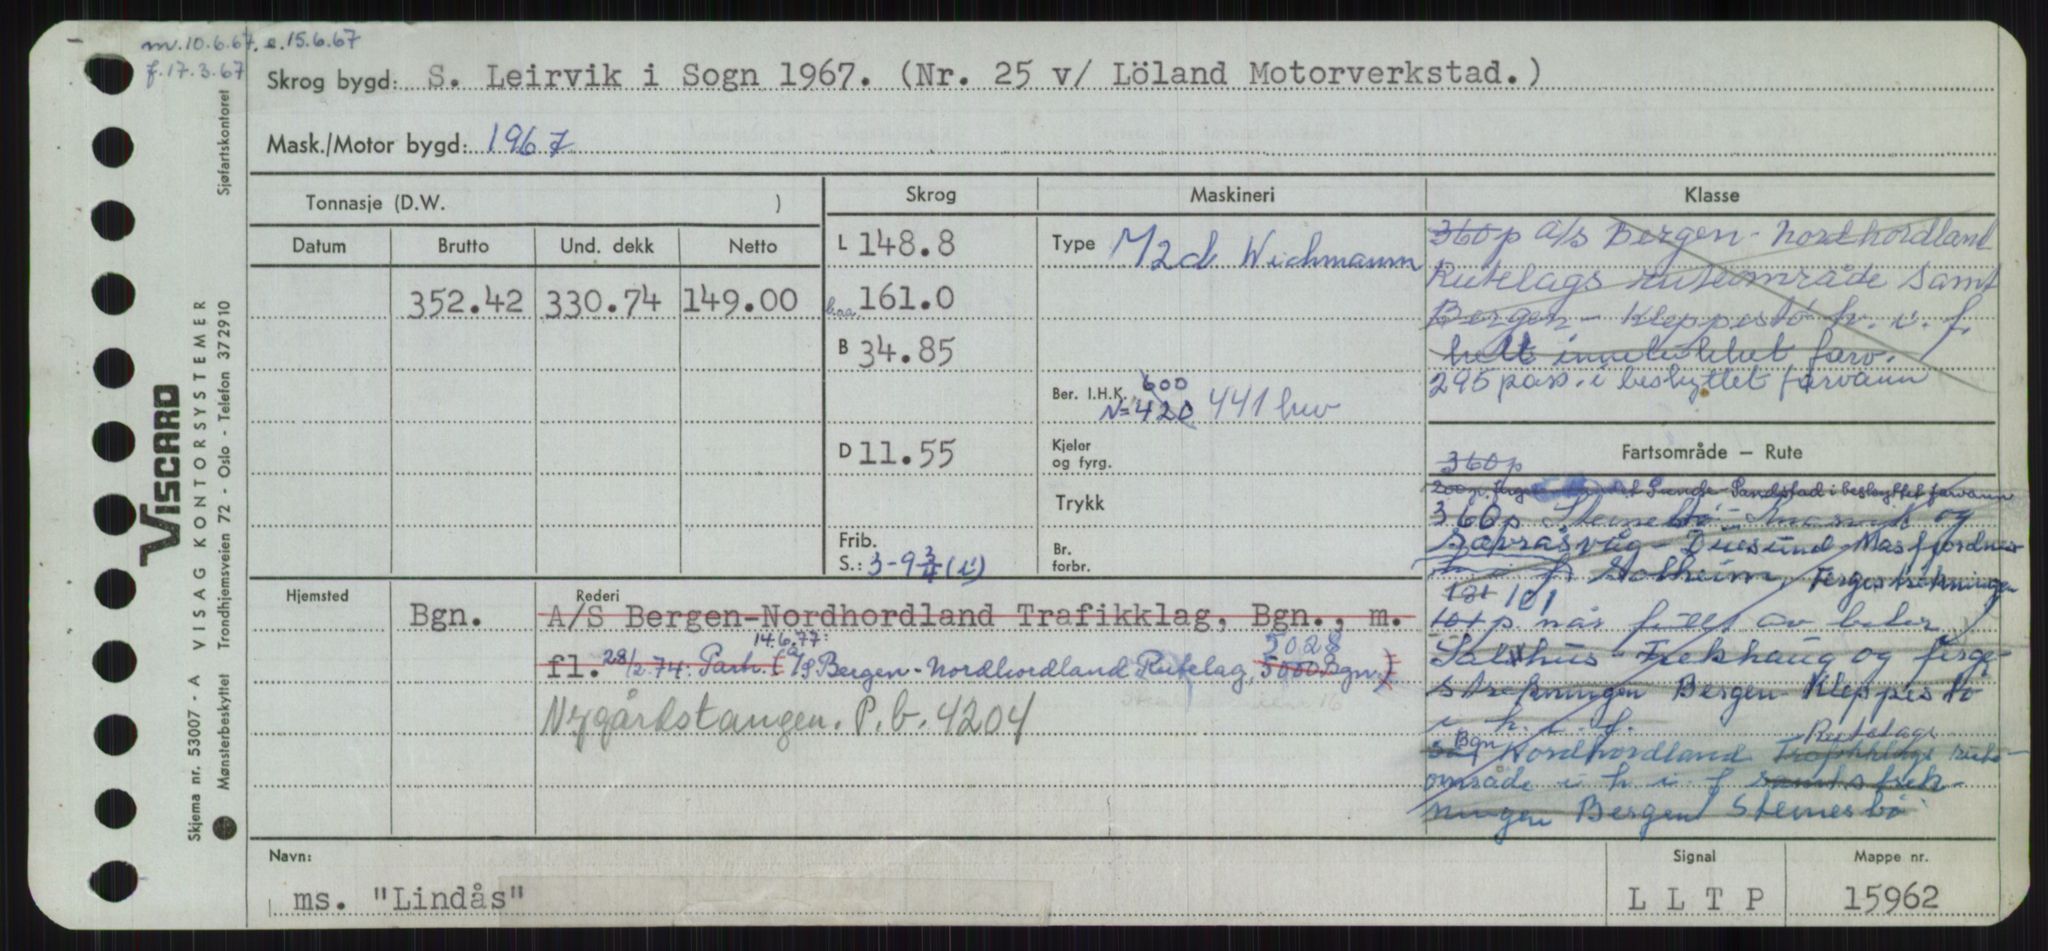 m. 10.6.67, e. 15.6.67
f. 17.3.67
Skrog bygd: S. Leirvik i Sogn 1967. (Nr. 25 v/ Löland Motorverkstad.)
Mask./Motor bygd: 1967
Tonnasje (D.W. )
Skrog
Maskineri
Klasse
Datum
Brutto
Und. dekk
Netto
352.42
330.74
149.00
L 148.8
b.aa. 161.0
B 34.85
D 11.55
Frib.
S.: 3-9 3/4 (i)
Type M2d Wichmann
600
Ber. I.H.K.
N=420 441 hw
Kjeler
og fyrg.
Trykk
Br.
forbr.
360p A/S Bergen-Nordhordland
Rutelags ruteområde samt
Bergen - Kleppestö h. i. f.
helt innelukket farv.
295 pass. i beskyttet farvann
Fartsområde – Rute
360p
200p. Sunde-Sandstad i beskyttet farvann
360p og
Duesund Masfjordnes
Solheim, Fergestrekningen
121 101
101p når fullt av biler
Salhus-Frekhaug og ferge-
strekningen Bergen-Kleppestö
i h. i. f.
Bgn Rutelags
Nordhordland Trafikklags rute-
område i h i f samt strek-
ningen Bergen Steinesbö
Hjemsted
Bgn.
Rederi
A/S Bergen-Nordhordland Trafikklag, Bgn., m.
14.6.77: 5028
fl. 28/2.74: Partr. (A/S Bergen-Nordhordland Rutelag, 5000 Bgn)
Nygårdstangen. P.b. 4204
Navn:
ms. "Lindås"
Signal
L L T P
Mappe nr.
15962
VISCARD
VISAG KONTORSYSTEMER
Skjema nr. 53007 - A
Sjøfartskontoret
Trondhjemsveien 72 - Oslo - Telefon 372910
Mønsterbeskyttet